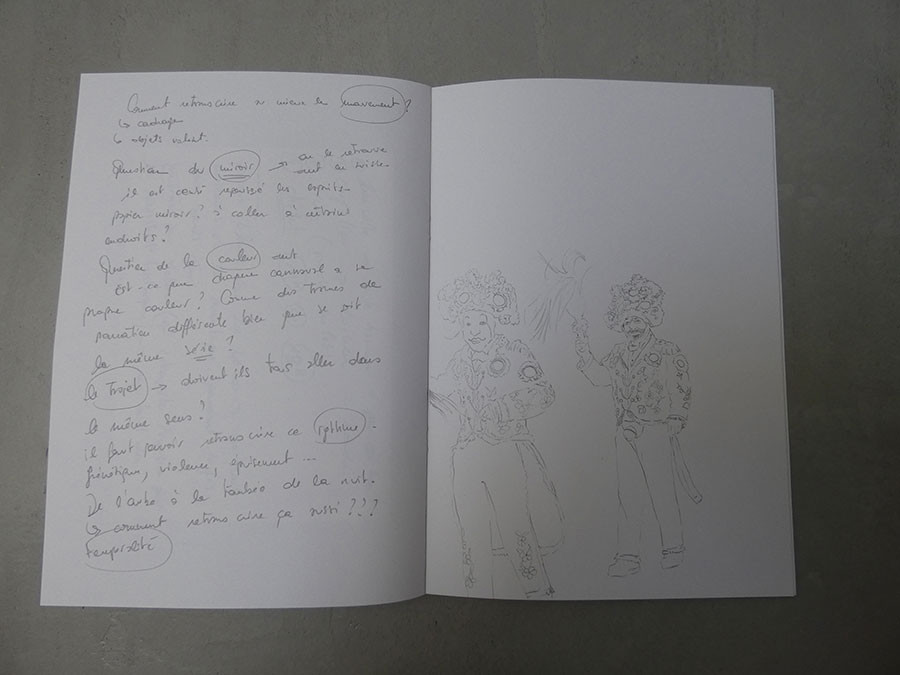 Comment retranscrire au mieux le mouvement ?
↳ cadrage
↳ objets volant.
Question du miroir → on le retrouve
il est censé repoussé les esprits
papier miroir ? à coller à
endroits ?
Question de la couleur
Est-ce que chaque carnaval a sa
propre couleur ? Comme des trames de
narration différente bien que se soit
la même série ?
le Trajet → doivent ils tous aller dans
le même sens ?
il faut pouvoir retranscrire ce rythme.
frénétique, violence, épuisement ...
De l'aube à la tombée de la nuit.
↳ comment retranscrire ça aussi ???
temporalité